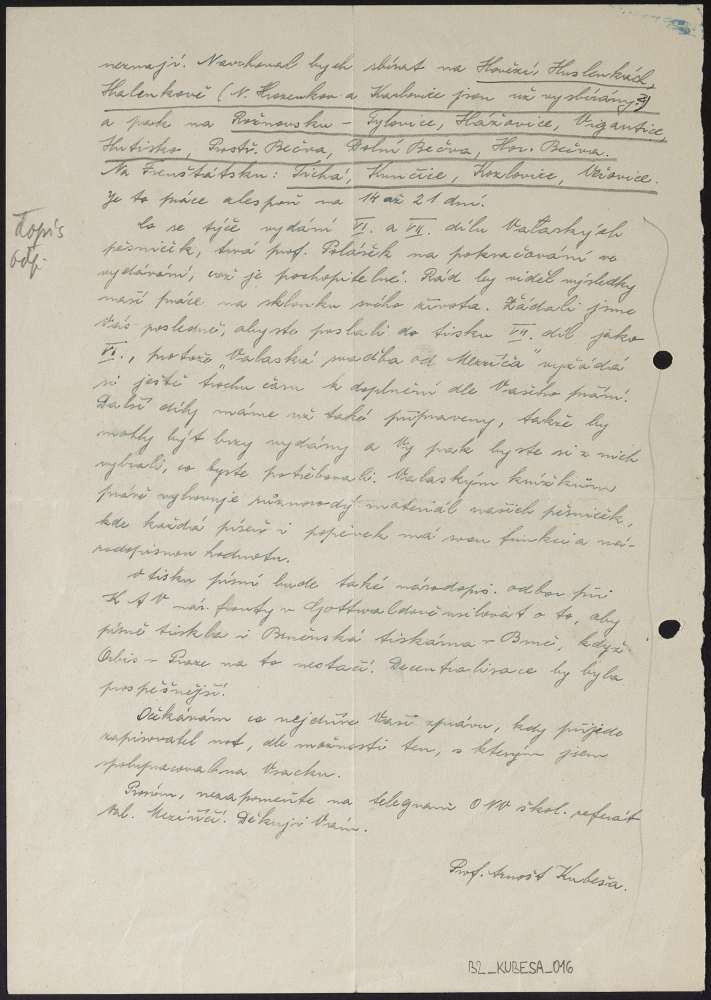 neznají. Navrhoval bych sbírat na Hovězí, Huslenkách,
Halenkově (N. Hrozenkov a Karlovice jsou už vysbírány?)
a pak na Rožnovsku – Tylovice, Hážovice, Vigantice,
Hutisko, Prostř. Bečva, Dolní Bečva, Hor. Bečva.
Na Frenštátsku: Tichá, Kunčice, Kozlovice, Věřovice.
Je to práce alespoň na 14 až 21 dní.
Co se týče vydání VI. a VII. dílu Valašských
pěsniček, trvá prof. Polášek na pokračování ve
vydávání, což je pochopitelné. Rád by viděl výsledky
naší práce na sklonku svého života. Žádali jsme
Vás posledně, abyste poslali do tisku VII. díl jako
VI., protože "Valaská svadba od Mezříča" vyžádá
si ještě trochu času k doplnění dle Vašeho přání.
Další díly máme už také připraveny, takže by
mohly být brzy vydány a Vy pak byste si z nich
vybrali, co byste potřebovali. Valaským knížkám
právě vyhovuje různorodý materiál našich pěsniček,
kde každá píseň i popěvek má svou funkci a ná-
rodopisnou hodnotu.
O tisku písní bude také národopis. odbor při
KAV nár. fronty v Gottwaldově usilovat o to, aby
písně tiskla i Brněnská tiskárna v Brně, když
Orbis v Praze na to nestačí. Decentralisace by byla
prospěšnější.
Očekávám co nejdříve Vaši zprávu, kdy přijede
zapisovatel not, dle možnosti ten, s kterým jsem
spolupracoval na Vsacku.
Prosím, nezapomeňte na telegram ONV škol. referát
Val. Meziříčí. Děkuji Vám.
Prof. Arnošt Kubeša.
Dopis
odp.
B2_KUBESA_016